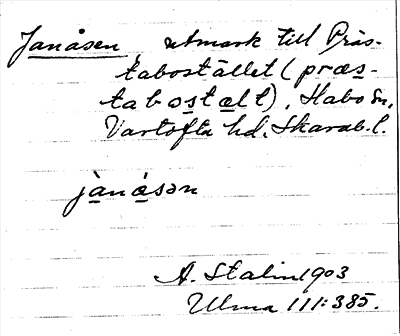 Janåsen, utmark till Präs-
tabostället (præs-
tabostælt), Habo sn,
Vartofta hd, Skarab. l.
jànásən
A. Stalin 1903
Ulma 111:385.